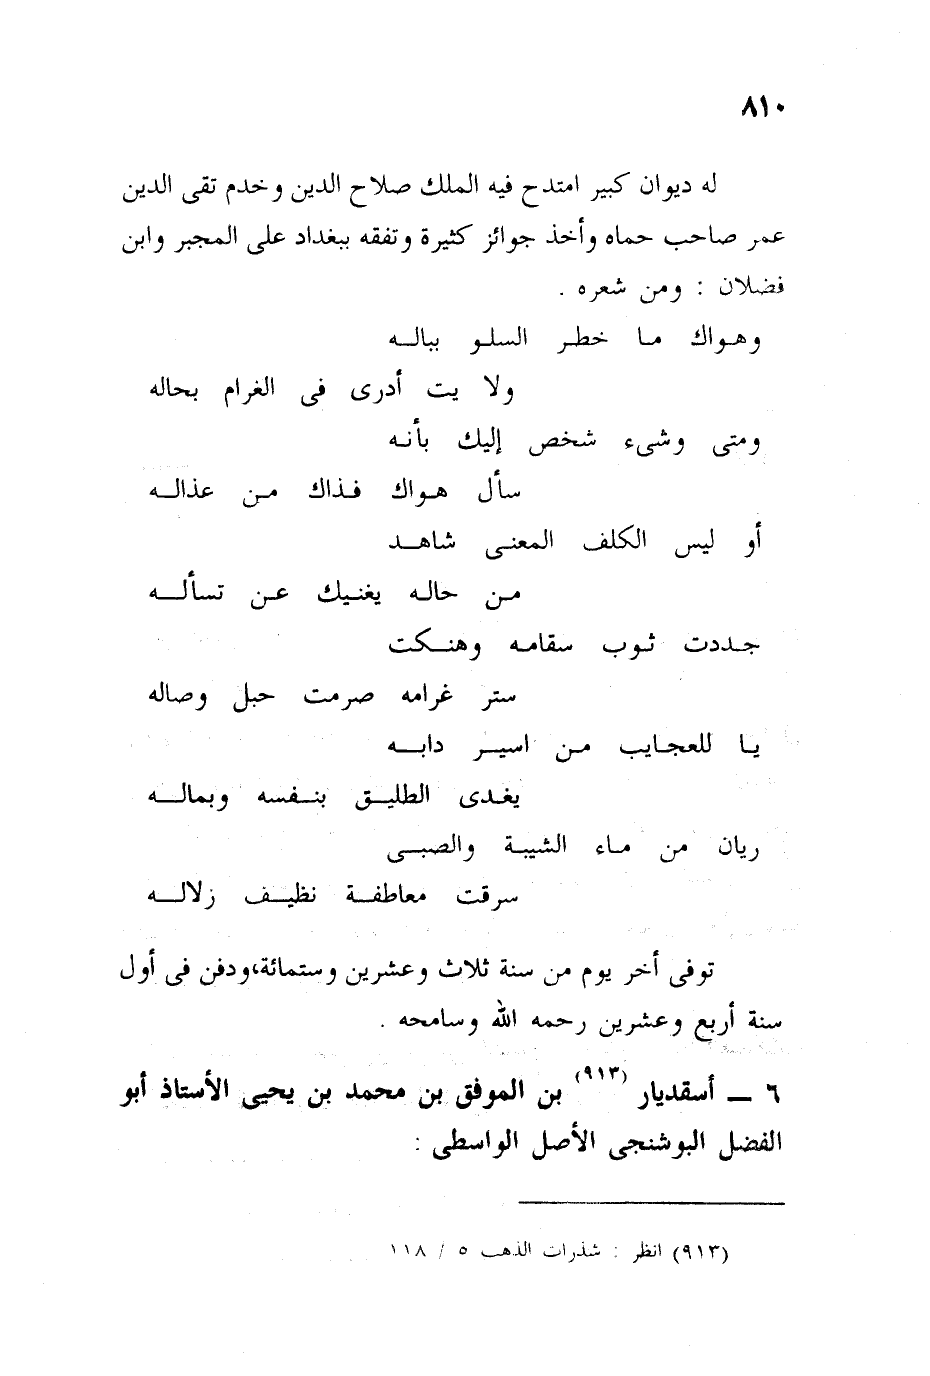 ٨١٠
له ديوان كبير امتدح فيه الملك صلاح الدين وخدم تقى الدين
عمر صاحب حماه وأخذ جوائز كثيرة وتفقه ببغداد على المجبر وابن
فضلان : ومن شعره .
وهـواك مـا خطـر السلـو ببالـه
ولا يت أدرى فى الغرام بحاله
ومتى وشىء شخص إليك بأنـه
سأل هـواك فـذاك مـن عذالـه
أو ليس الكلف المعنـى شاهـد
مـن حالـه يغنيـك عـن تسألـه
جـددت ثـوب سقامـه وهنـكت
ستر غرامه صرمت حبل وصاله
يـا للعجـايب مـن اسيـر دابـه
يغـدى الطليـق بنـفسه وبمالـه
ريان من مـاء الشيبـة والصبـى
سرقت معاطفـة نظيـف زلالـه
توفى أخر يوم من سنة ثلاث وعشرين وستمائة،ودفن فى أول
سنة أربع وعشرين رحمه الله وسامحه .
٦ ــ أسقديار (٩١٣) بن الموفق بن محمد بن يحيى الأستاذ أبو
الفضل البوشنجى الأصل الواسطى :
(٩١٣) انظر : شذرات الذهب ٥ / ١١٨